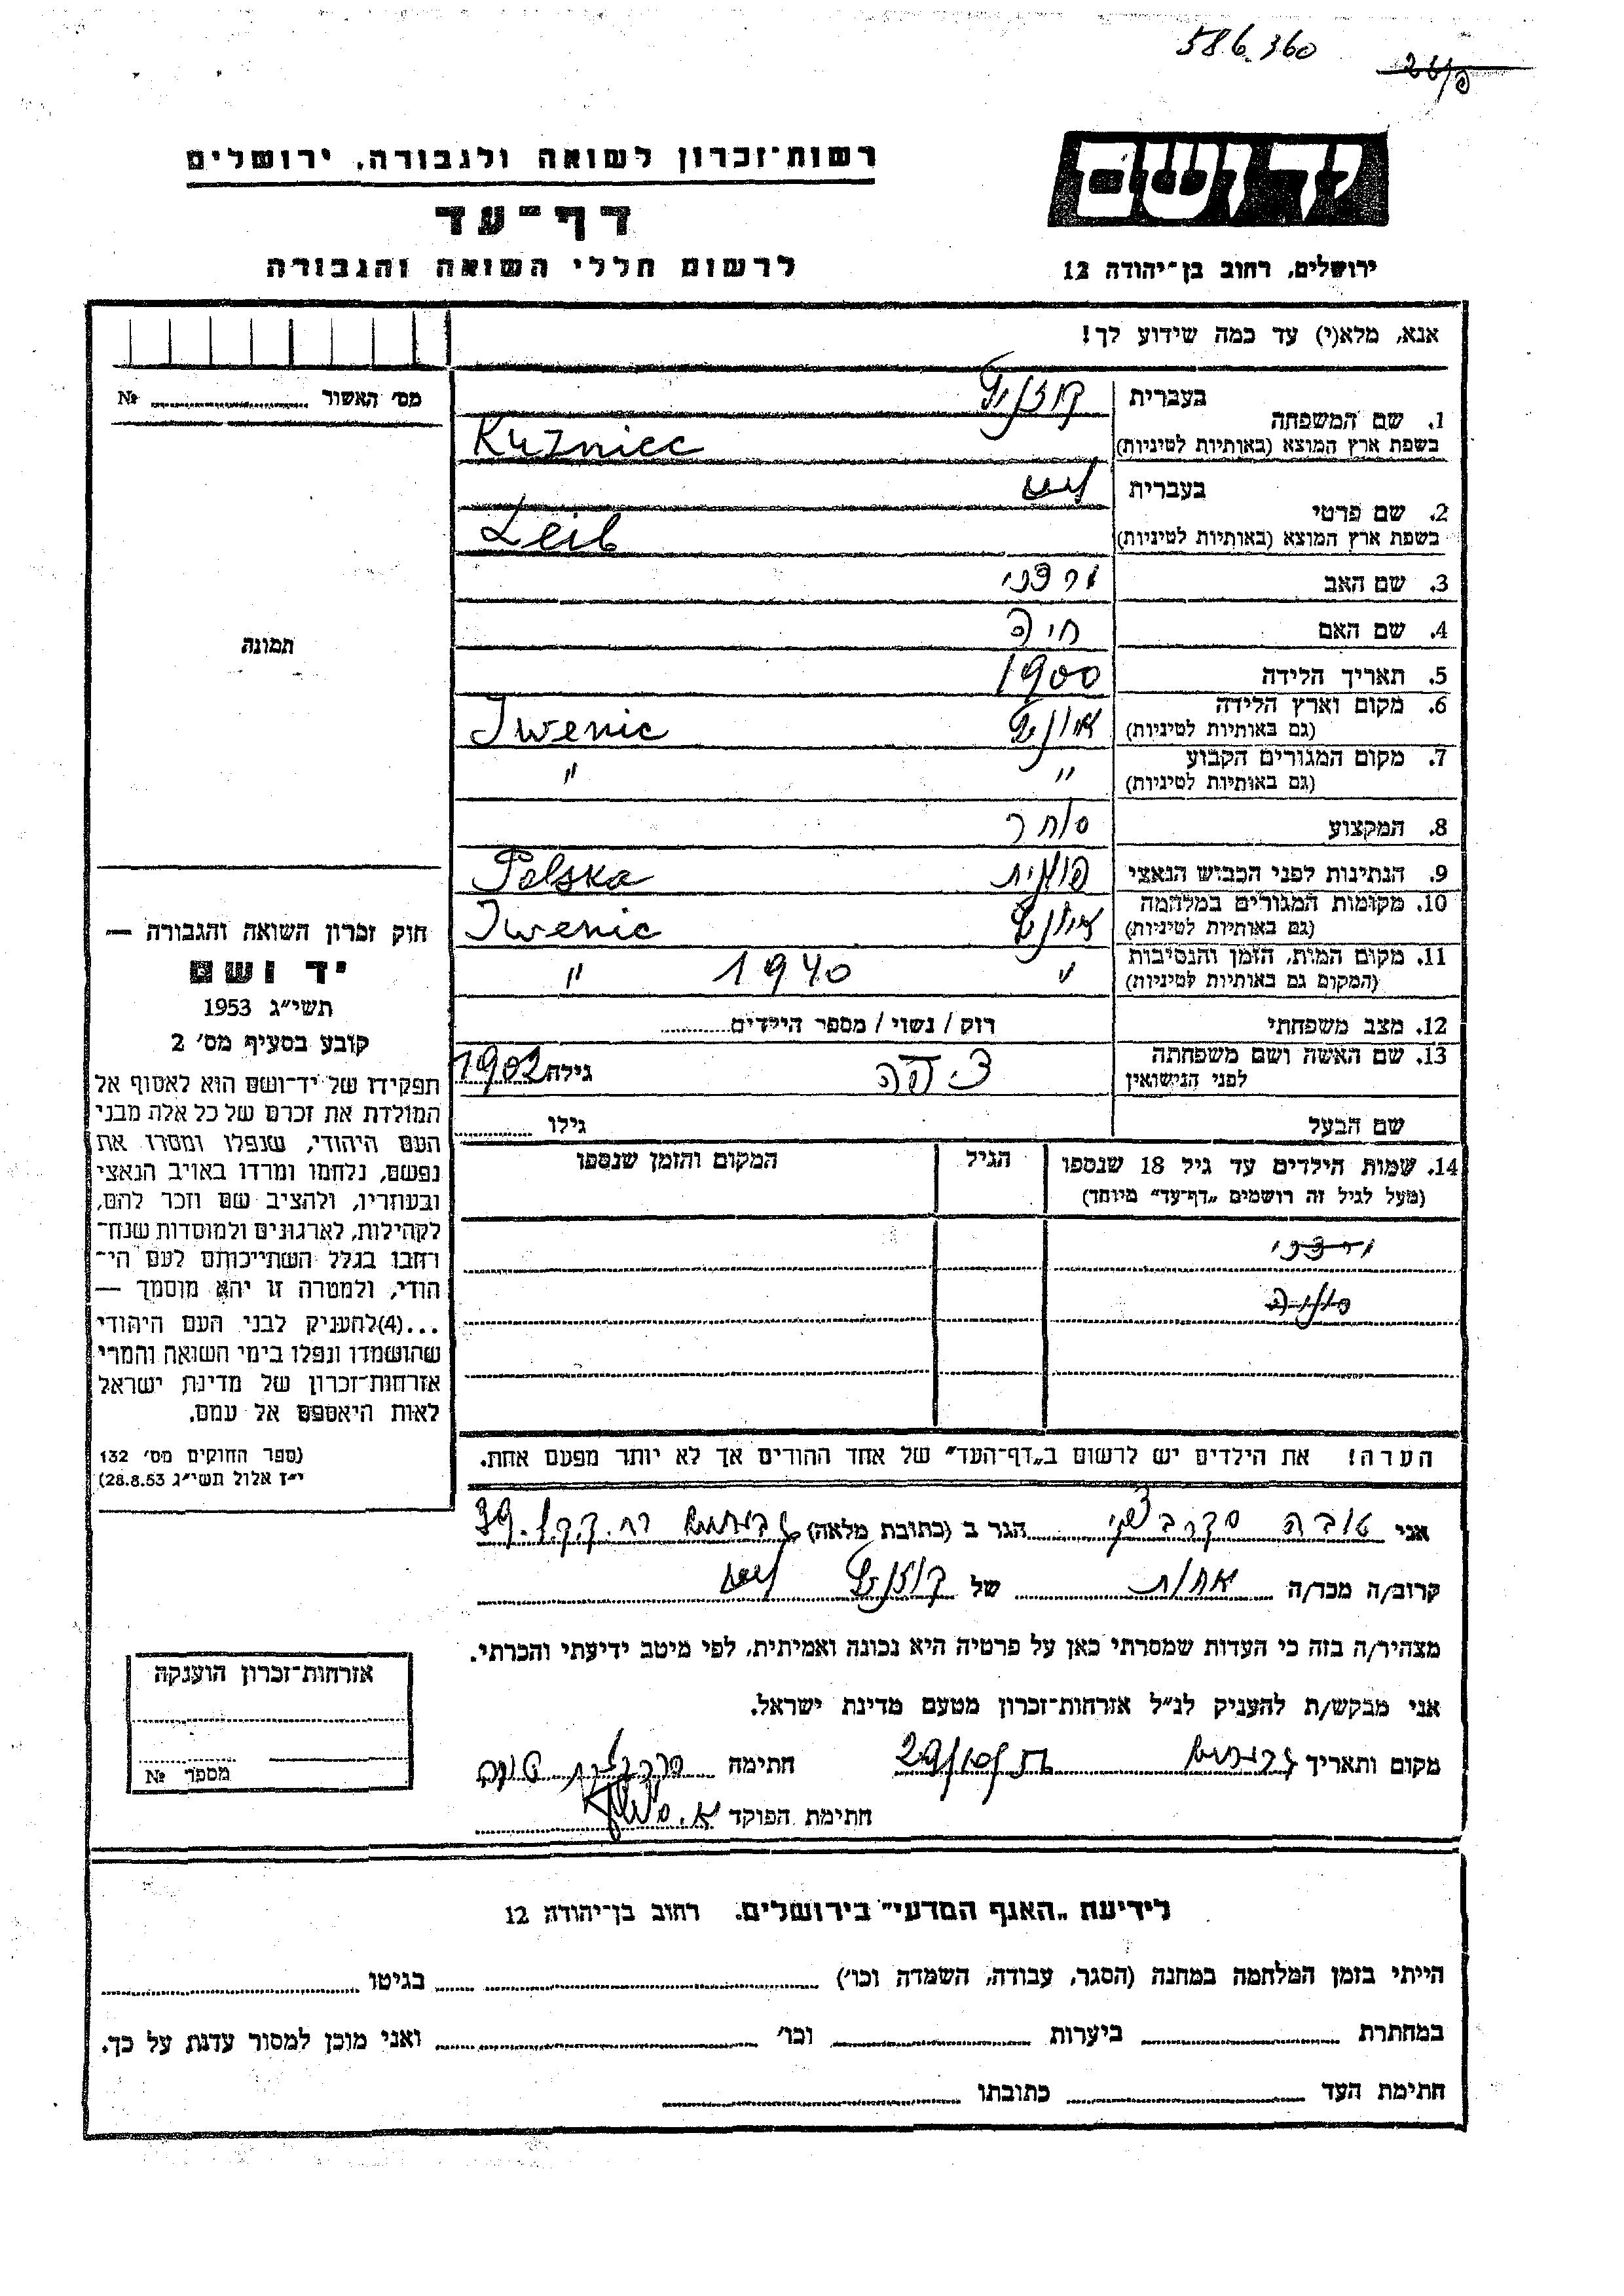 586.360
יד ושם
רשות־זכרון לשואה ולגבורה, ירושלים
דף־עד
לרשום חללי השואה והגבורה
ירושלים, רחוב בן־יהודה 12
אנא, מלא(י) עד כמה שידוע לך!
מס׳ האשור № ........
1. שם המשפחה
בעברית קוזניץ
בשפת ארץ המוצא (באותיות לטיניות) Kuzniec
2. שם פרטי
בעברית לייב
בשפת ארץ המוצא (באותיות לטיניות) Leib
3. שם האב
4. שם האם חיה
5. תאריך הלידה 1900
6. מקום וארץ הלידה (גם באותיות לטיניות) איוניץ Iwenic
7. מקום המגורים הקבוע (גם באותיות לטיניות) " "
8. המקצוע סוחר
9. הנתינות לפני הכבוש הנאצי פולנית Polska
10. מקומות המגורים במלחמה (גם באותיות לטיניות) איוניץ Iwenic
11. מקום המות, הזמן והנסיבות (המקום גם באותיות לטיניות) " 1940 "
12. מצב משפחתי רוק / נשוי / מספר הילדים........
13. שם האשה ושם משפחתה לפני הנישואין גילה 1902
שם הבעל גילו ........
14. שמות הילדים עד גיל 18 שנספו
(מעל לגיל זה רושמים „דף־עד" מיוחד)
הגיל
המקום והזמן שנספו
הערה! את הילדים יש לרשום ב„דף־העד" של אחד ההורים אך לא יותר מפעם אחת.
תמונה
חוק זכרון השואה והגבורה —
יד ושם
תשי״ג 1953
קובע בסעיף מס׳ 2
תפקידו של יד־ושם הוא לאסוף אל
המולדת את זכרם של כל אלה מבני
העם היהודי, שנפלו ומסרו את
נפשם, נלחמו ומרדו באויב הנאצי
ובעוזריו, ולהציב שם וזכר להם,
לקהילות, לארגונים ולמוסדות שנח־
רחבו בגלל השתייכותם לעם הי־
הודי, ולמטרה זו יהא מוסמך —
...(4)להעניק לבני העם היהודי
שהושמדו ונפלו בימי השואה והמרי
אזרחות־זכרון של מדינת ישראל
לאות היאספם אל עמם.
(ספר החוקים מס׳ 132
י״ז אלול תשי״ג 28.8.53)
אני טובה הגר ב (כתובת מלאה) רח. ק.ק.ל. 39
קרוב/ה מכר/ה אחות של קוזניץ לייב
מצהיר/ה בזה כי העדות שמסרתי כאן על פרטיה היא נכונה ואמיתית, לפי מיטב ידיעתי והכרתי.
אני מבקש/ת להעניק לנ״ל אזרחות־זכרון מטעם מדינת ישראל.
מקום ותאריך חתימה
חתימת הפוקד
אזרחות־זכרון הוענקה
מספר №
לידיעת „האגף המדעי" בירושלים. רחוב בן־יהודה 12
הייתי בזמן המלחמה במחנה (הסגר, עבודה, השמדה וכו׳) ........ בגיטו ........
במחתרת ........ ביערות ........ וכו׳ ........ ואני מוכן למסור עדות על כך.
חתימת העד ........ כתובתו ........